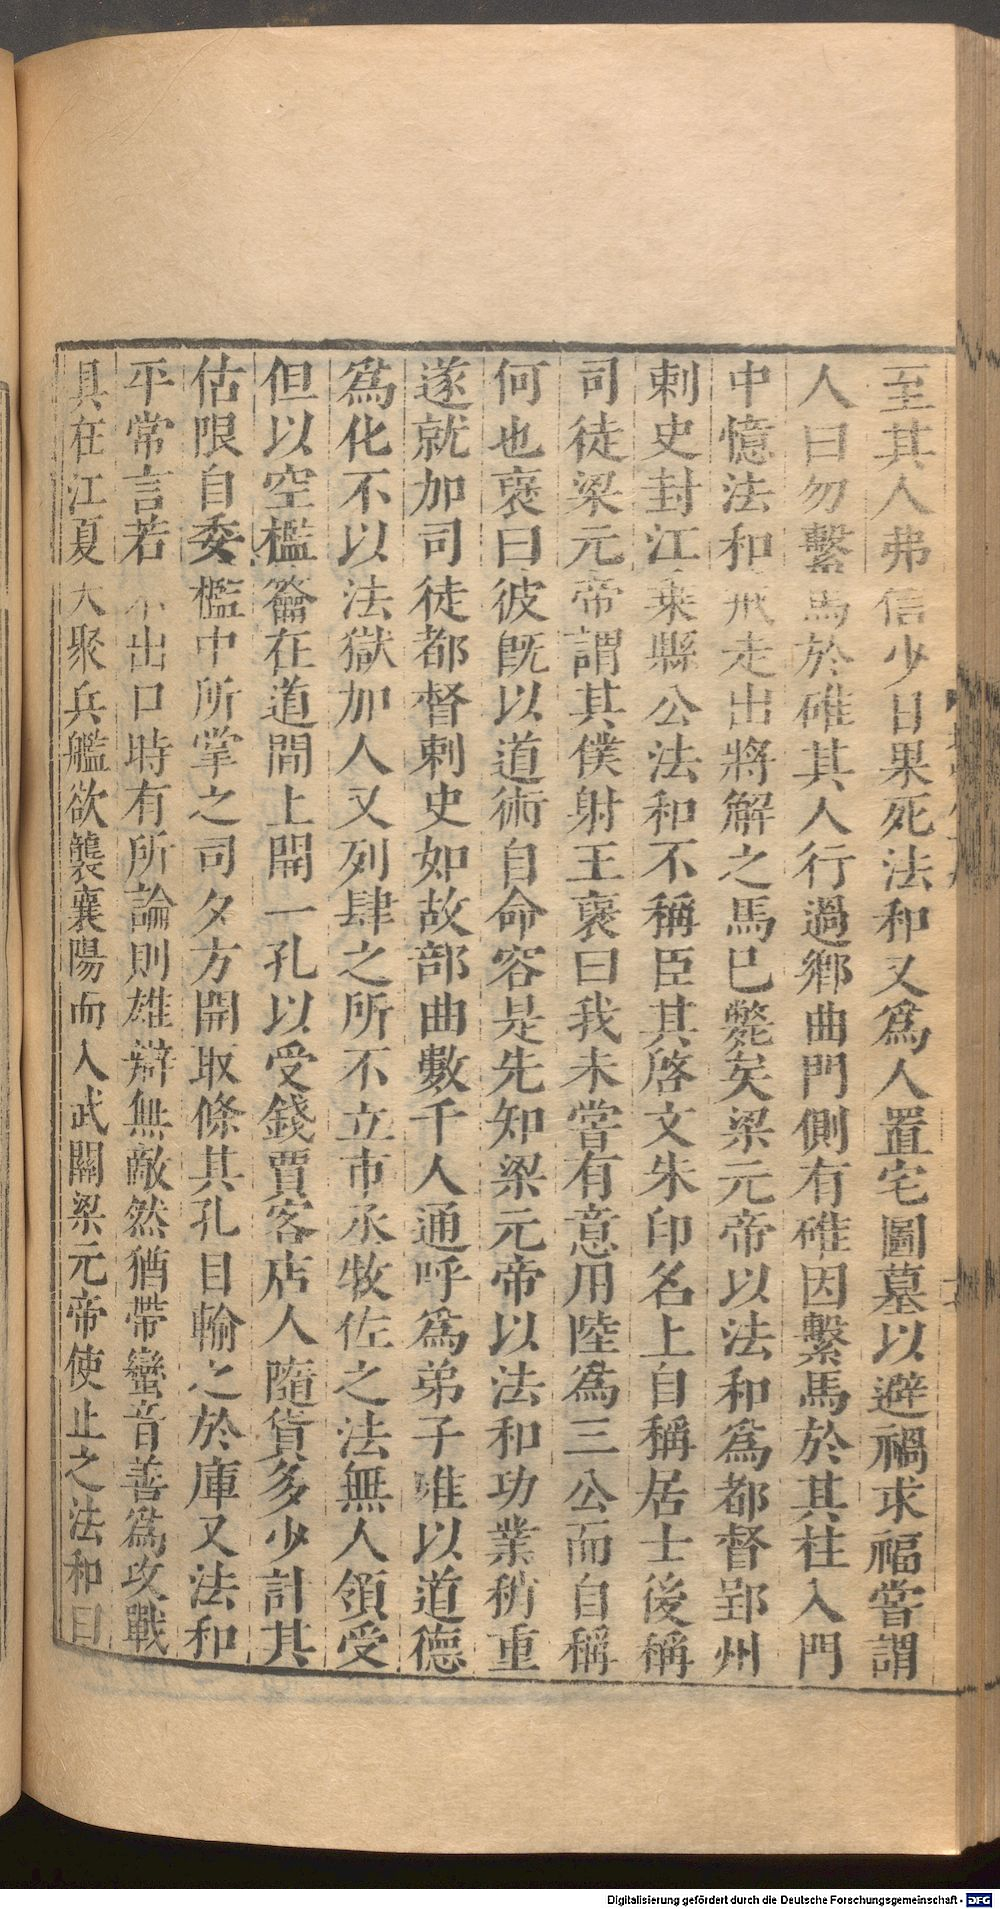 至其人弗信少日果死法和又爲人置宅圖墓以避禍求福嘗謂
人曰勿繫馬於碓其人行過鄉曲門側有碓因繫馬於其柱入門
中憶法和戒走出將解之馬已斃矣梁元帝以法和爲都督郢州
刺史封江乗縣公法和不稱臣其啓文朱印名上自稱居士後稱
司徒梁元帝謂其僕射王裒曰我未嘗有意用陸爲三公而自稱
何也裒曰彼旣以道術自命容是先知梁元帝以法和功業稍重
遂就加司徒都督刺史如故部曲數千人通呼爲弟子唯以道德
爲化不以法獄加人又列肆之所不立市丞牧佐之法無人領受
但以空檻籥在道間上開一孔以受錢賈客店人隨貨多少計其
估限自委檻中所掌之司夕方開取條其孔目輸之於庫又法和
平常言若不出口時有所論則雄辯無敵然猶帶蠻音善爲攻戰
具在江夏大聚兵艦欲襲襄陽而入武關梁元帝使止之法和曰
Digitalisierung gefördert durch die Deutsche Forschungsgemeinschaft - DFG